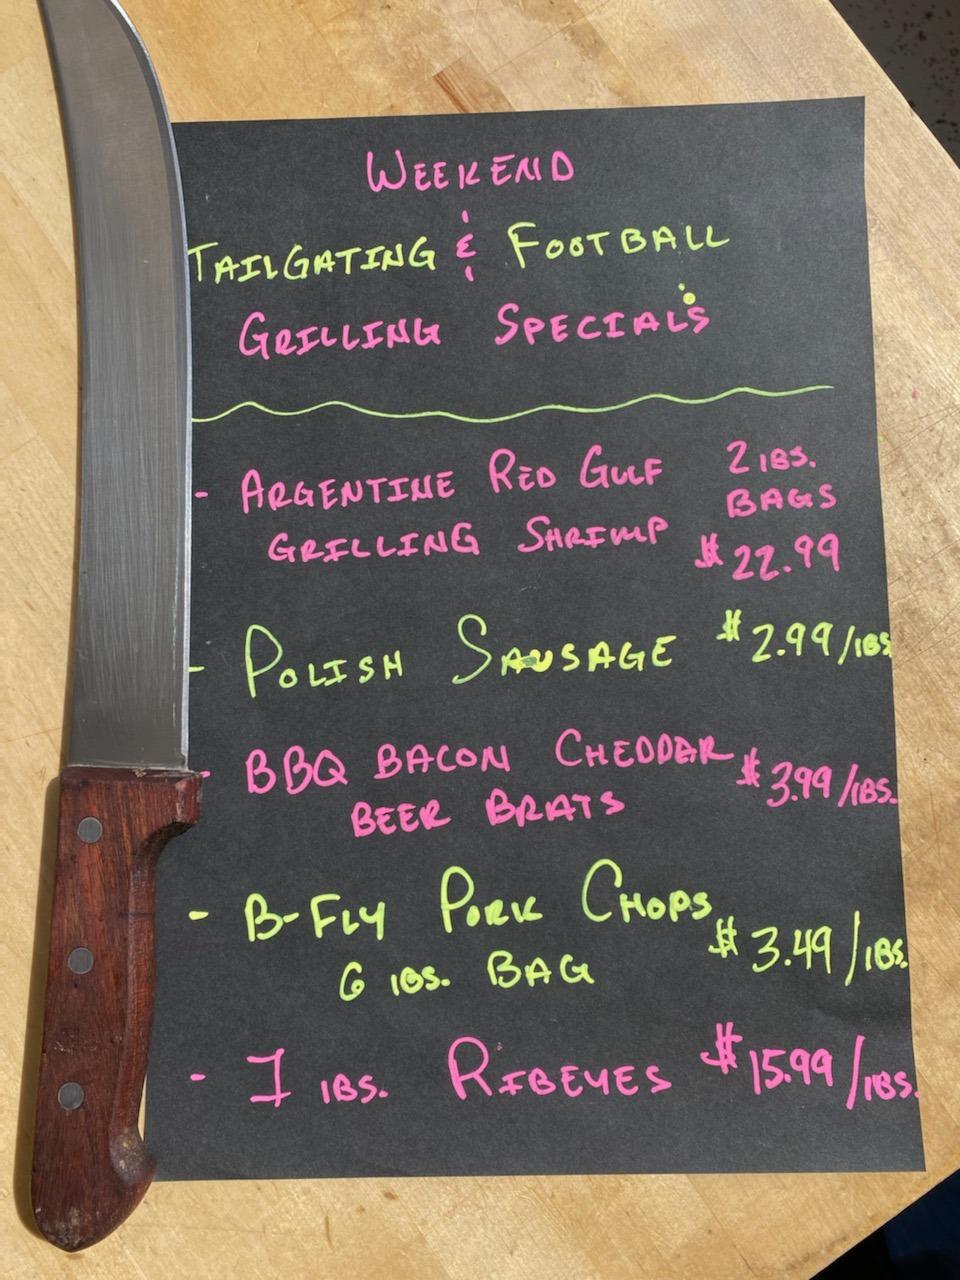 WEEKEND
TAILGATING & FOOTBALL
GRILLING SPECIALS
- ARGENTINE RED GULF 2 lBS.
GRILLING SHRIMP BAGS
$22.99
- POLISH SAUSAGE $2.99/lBS
- BBQ BACON CHEDDAR $3.99/lBS.
BEER BRATS
- B-FLY PORK CHOPS $3.49/lBS.
6 lBS. BAG
- 1 lBS. RIBEYES $15.99/lBS.